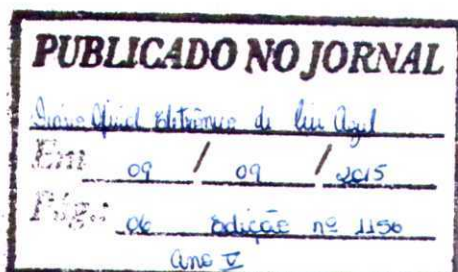 PUBLICADO NO JORNAL
Diário Oficial Eletrônico de Rio Azul
Em 09 / 09 / 2015
Pág.: 06 Edição nº 1156
Ano V